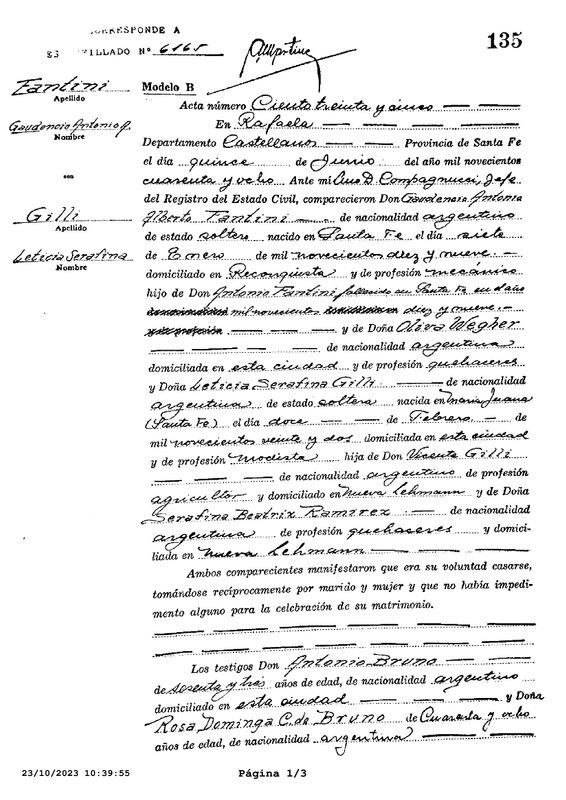 CORRESPONDE A
135
PILLADO Nº 6165
Fantini
Apellido
Gaudencio Antonio A.
Nombre
con
Gilli
Apellido
Leticia Serafina
Nombre
Modelo B
Acta número Ciento treinta y cinco
En Rafaela
Departamento Castellanos Provincia de Santa Fe
el día quince de Junio del año mil novecientos
cuarenta y ocho Ante mi D. Compagnucci, Jefe
del Registro del Estado Civil, comparecieron Don Gaudencio Antonio
Alberto Fantini de nacionalidad argentino
de estado soltero nacido en Santa Fe el día siete
de Enero de mil novecientos diez y nueve.
domiciliado en Reconquista y de profesión mecánico
hijo de Don Antonio Fantini fallecido en Santa Fe en el año
mil novecientos diez y nueve.
y de Doña Oliva Wegher
de nacionalidad argentina
domiciliada en esta ciudad y de profesión quehaceres
y Doña Leticia Serafina Gilli de nacionalidad
argentina de estado soltera nacida en María Juana
(Santa Fe) el día doce de Febrero de
mil novecientos veinte y dos domiciliada en esta ciudad
y de profesión modista hija de Don Vicente Gilli
de nacionalidad argentino de profesión
agricultor y domiciliado en Nueva Lehmann y de Doña
Serafina Beatriz Ramirez de nacionalidad
argentina de profesión quehaceres y domici-
liada en Nueva Lehmann
Ambos comparecientes manifestaron que era su voluntad casarse,
tomándose recíprocamente por marido y mujer y que no había impedi-
mento alguno para la celebración de su matrimonio.
Los testigos Don Antonio Bruno
de sesenta y tres años de edad, de nacionalidad argentino
domiciliado en esta ciudad y Doña
Rosa Dominga C. de Bruno de Cuarenta y ocho
años de edad, de nacionalidad argentina
23/10/2023 10:39:55
Página 1/3